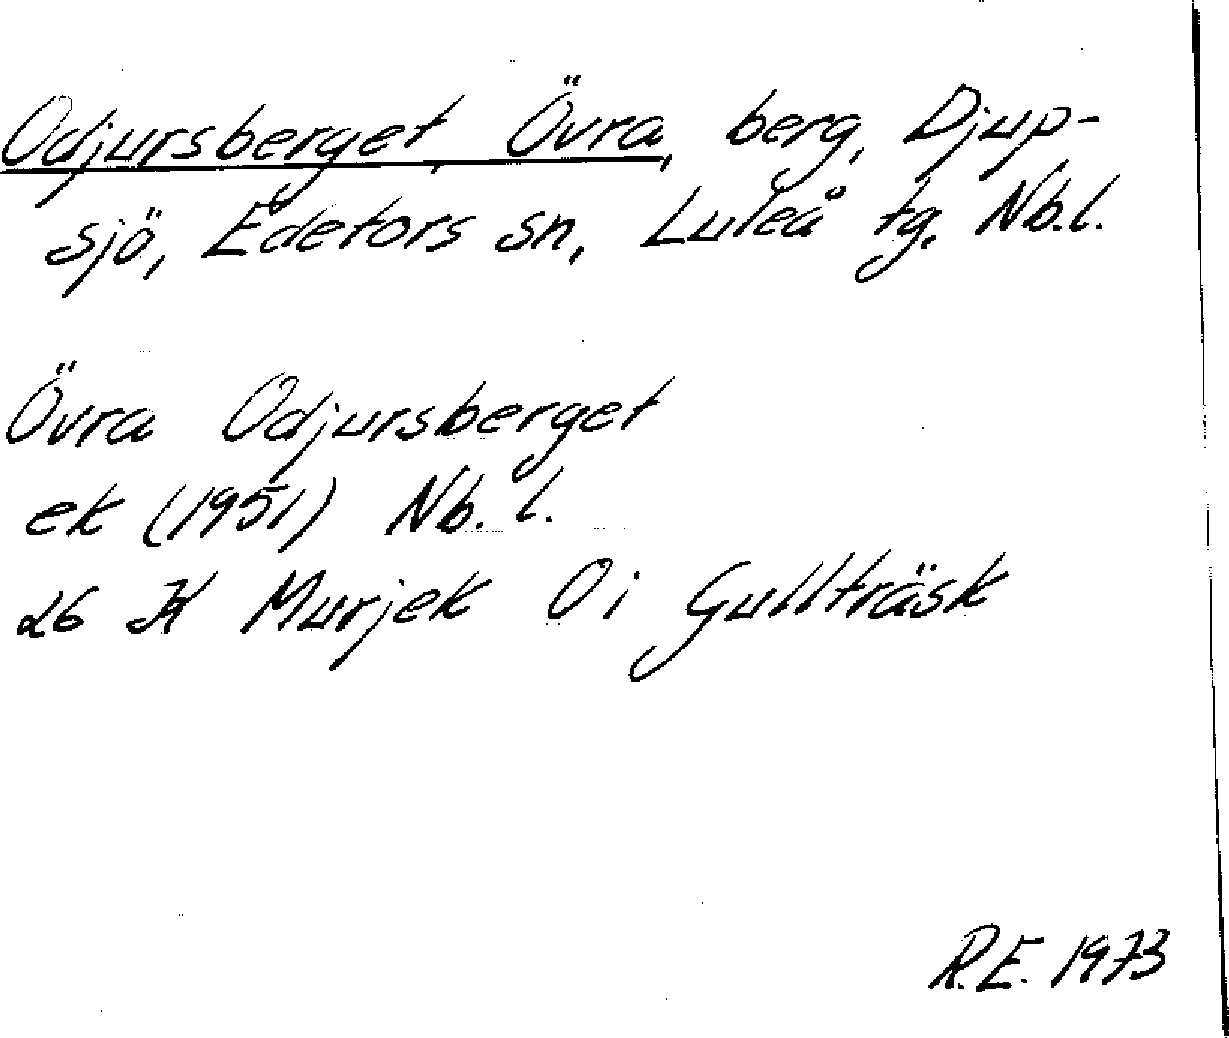 Odjursberget, Övra, berg, Djup-
sjö, Edefors sn, Luleå tg. Nb.l.
Övra Odjursberget
ek (1951) Nb. l.
26 K Murjek Oi Gullträsk
R.E. 1973